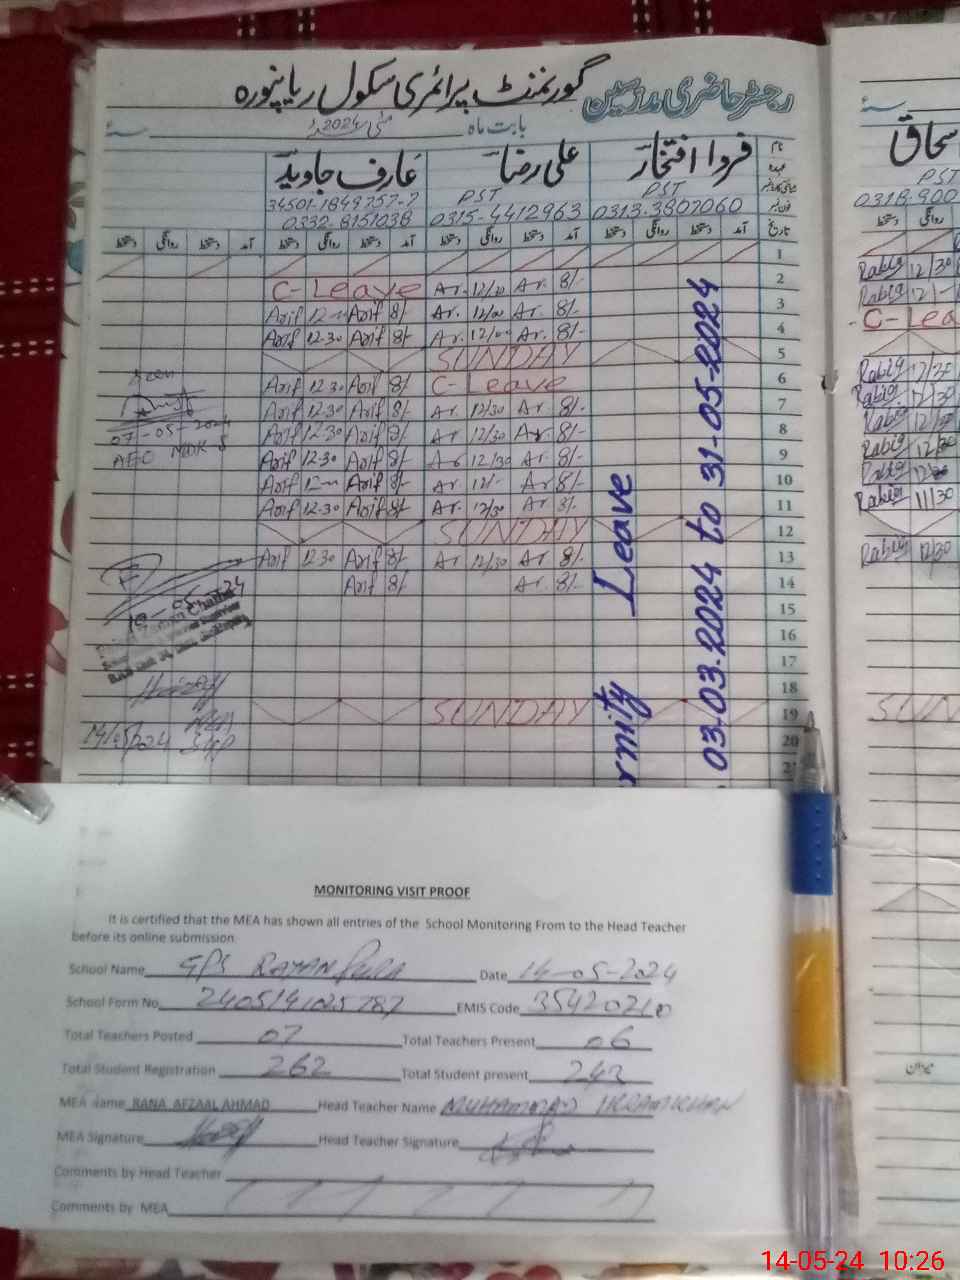 رجسٹر حاضری مدرسین گورنمنٹ پرائمری سکول ریاپنورہ
بابت ماہ مئی 2024ء سنہ
نام فروا افتخار علی رضا عارف جاوید
عہدہ PST PST 34501-1849757-7
فون نمبر 0313.3807060 0315-4412963 0332-8151038
تاریخ آمد دستخط روانگی دستخط آمد دستخط روانگی دستخط آمد دستخط روانگی دستخط آمد دستخط روانگی دستخط
1
C-Leave Ar. 12/30 Ar. 8/- 2
Arif 12 Arif 8/- Ar. 12/00 Ar. 8/- 3
Arif 12-30 Arif 8/- Ar. 12/00 Ar. 8/- 4
SUNDAY 5
Arif 12 30 Arif 8/- C-Leave 6
Arif 12-30 Arif 8/- Ar. 12/30 Ar. 8/- 7
Arif 12-30 Arif 8/- Ar. 12/30 Ar. 8/- 8
Arif 12-30 Arif 8/- Ar 12/30 Ar. 8/- 9
Arif 12 Arif 8/- Ar. 12/- Ar 8/- 10
Arif 12-30 Arif 8/- Ar. 12/30 Ar. 8/- 11
SUNDAY 12
Arif 12 30 Arif 8/- Ar. 12/30 Ar. 8/- 13
Arif 8/- Ar. 8/- 14
15
16
17
18
SUNDAY 19
20
Seen
07-05-2024
AEO
05-24
14/05/2024 MEA
rnity Leave
03-03-2024 to 31-05-2024
سحاق
PST
0318-900
روانگی دستخط
Rabia 12/30
Rabia 12/-
C-Lea
Rabia 12/30
Rabia 12/30
Rabia 12/30
Rabia 12/30
Rabia 12/30
Rabia 11/30
Rabia 12/30
SUN
میزان
MONITORING VISIT PROOF
It is certified that the MEA has shown all entries of the School Monitoring From to the Head Teacher
before its online submission
School Name GPS RAYAN Pura Date 14-05-2024
School Form No. 2405141025787 EMIS Code 35420210
Total Teachers Posted 07 Total Teachers Present 06
Total Student Registration 262 Total Student present 242
MEA name RANA AFZAAL AHMAD Head Teacher Name MUHAMMAD IKRAM KHAN
MEA Signature Head Teacher Signature
Comments by Head Teacher
Comments by MEA
14-05-24 10:26